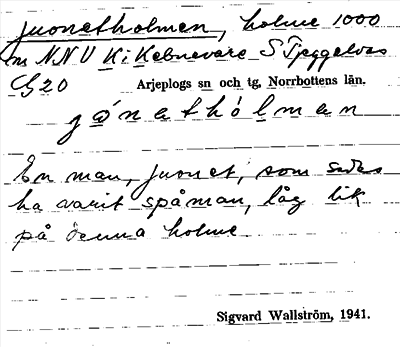 Juonetholmen, holme 1000
m NNV Ki Kebnevare S Tjeggelvas
G20 Arjeplogs sn och tg, Norrbottens län.
En man, Juonet, som sades
ha varit spåman, låg lik
på denna holme
Sigvard Wallström, 1941.